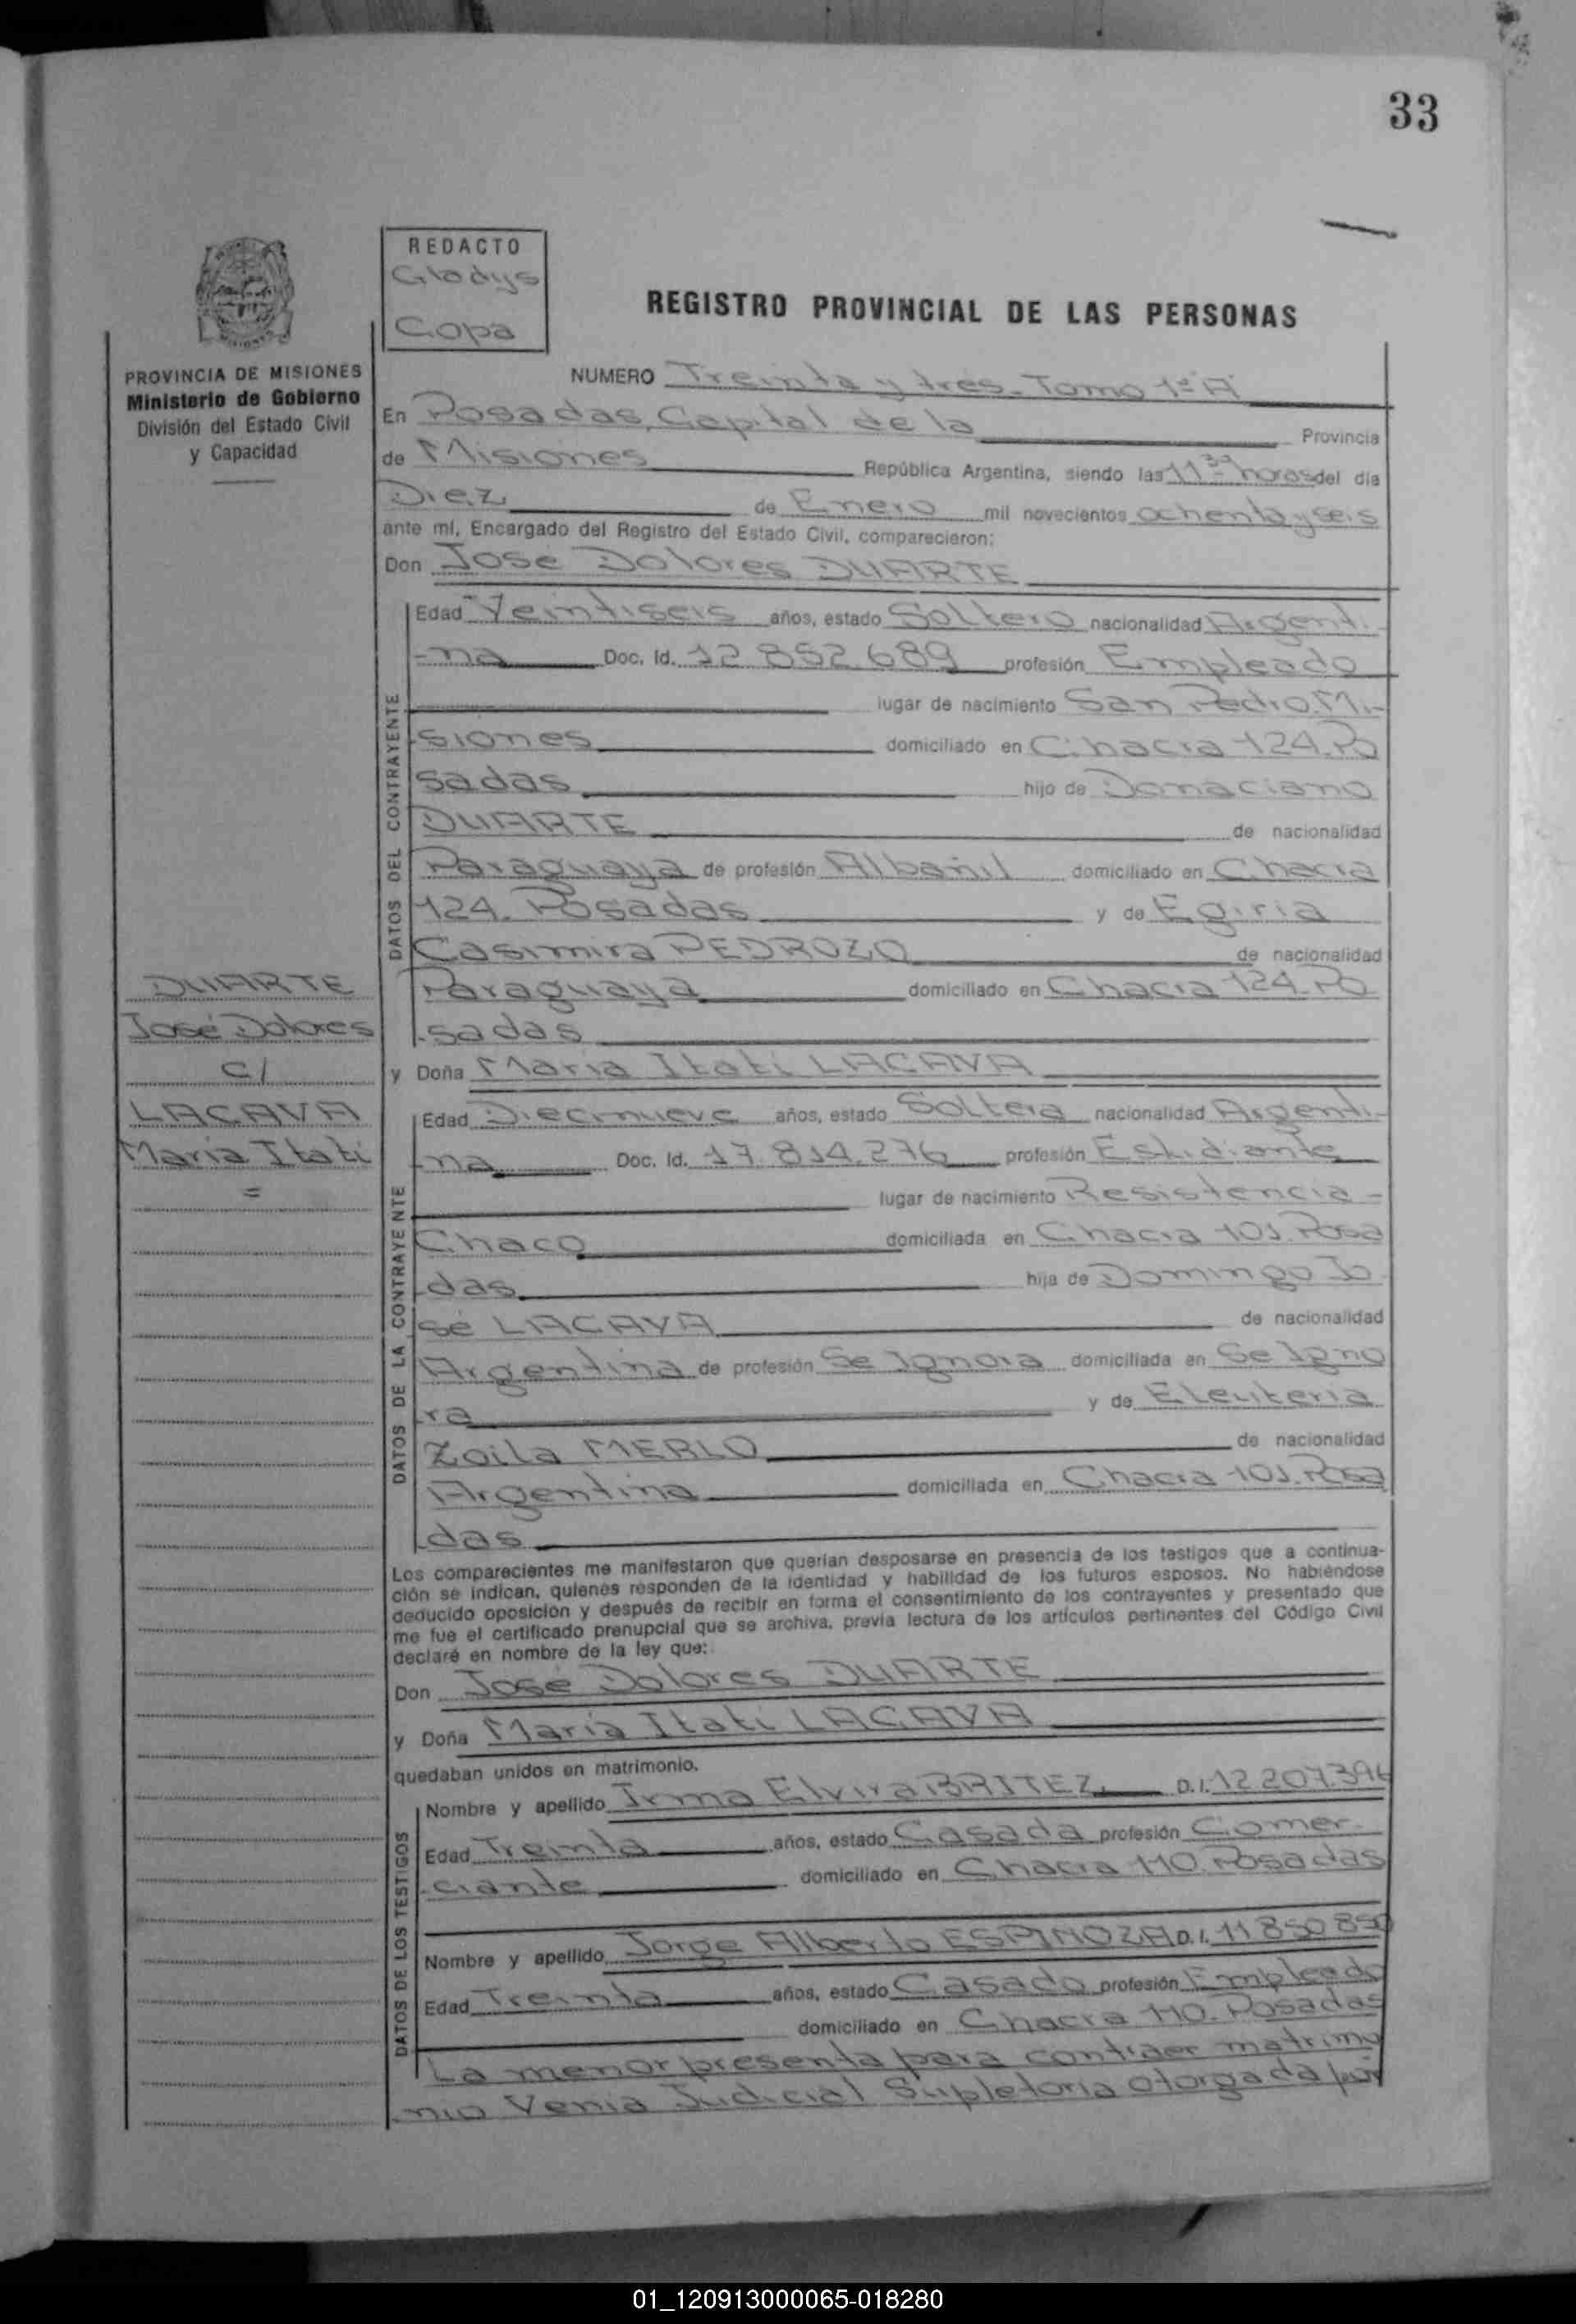 33
REDACTO
Gladys
Copa
REGISTRO PROVINCIAL DE LAS PERSONAS
PROVINCIA DE MISIONES
Ministerio de Gobierno
División del Estado Civil
y Capacidad
NUMERO Treinta y tres - Tomo 1º "A"
En Posadas, Capital de la Provincia
de Misiones República Argentina, siendo las 11 30 horas del día
Diez de Enero mil novecientos ochenta y seis
ante mí, Encargado del Registro del Estado Civil, comparecieron:
Don José Dolores DUARTE
DATOS DEL CONTRAYENTE
Edad Veintiseis años, estado Soltero nacionalidad Argenti-
-na Doc. Id. 12.852.689 profesión Empleado
lugar de nacimiento San Pedro. Mi-
siones domiciliado en Chacra 124. Po
sadas hijo de Donaciano
DUARTE de nacionalidad
Paraguaya de profesión Albañil domiciliado en Chacra
124. Posadas y de Egiria
Casimira PEDROZO de nacionalidad
Paraguaya domiciliado en Chacra 124. Po
-sadas
DUARTE
José Dolores
c/
LACAVA
María Itatí
=
y Doña María Itatí LACAVA
DATOS DE LA CONTRAYENTE
Edad Diecinueve años, estado Soltera nacionalidad Argenti-
-na Doc. Id. 17.814.276 profesión Estudiante
lugar de nacimiento Resistencia -
Chaco domiciliada en Chacra 101. Posa
-das hija de Domingo Jo
sé LACAVA de nacionalidad
Argentina de profesión Se Ignora domiciliada en Se Igno
-ra y de Eleuteria
Zoila MERLO de nacionalidad
Argentina domiciliada en Chacra 101. Posa
-das
Los comparecientes me manifestaron que querían desposarse en presencia de los testigos que a continua-
ción se indican, quienes responden de la identidad y habilidad de los futuros esposos. No habiéndose
deducido oposición y después de recibir en forma el consentimiento de los contrayentes y presentado que
me fue el certificado prenupcial que se archiva, previa lectura de los artículos pertinentes del Código Civil
declaré en nombre de la ley que:
Don José Dolores DUARTE
y Doña María Itatí LACAVA
quedaban unidos en matrimonio.
DATOS DE LOS TESTIGOS
Nombre y apellido Irma Elvira BRITEZ D.I. 12.207.396
Edad Treinta años, estado Casada profesión Comer-
-ciante domiciliado en Chacra 110. Posadas
Nombre y apellido Jorge Alberto ESPINOZA D.I. 11.850.850
Edad Treinta años, estado Casado profesión Empleado
domiciliado en Chacra 110. Posadas
La menor presenta para contraer matrimo
-nio Venia Judicial Supletoria otorgada por
01_120913000065-018280